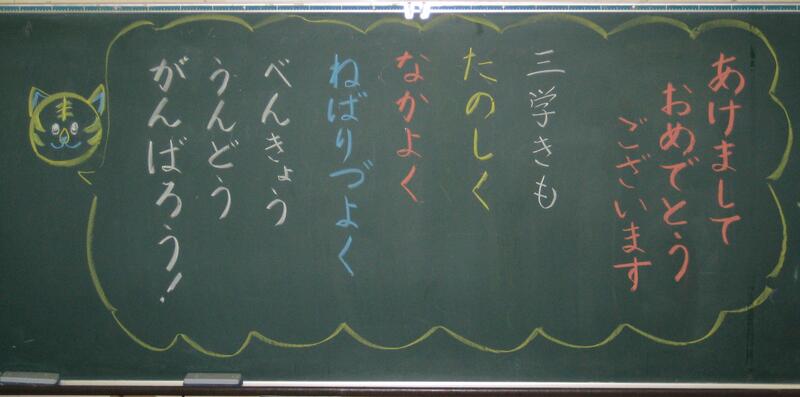 あけまして
おめでとう
ございます
三学きも
たのしく
なかよく
ねばりづよく
べんきょう
うんどう
がんばろう!